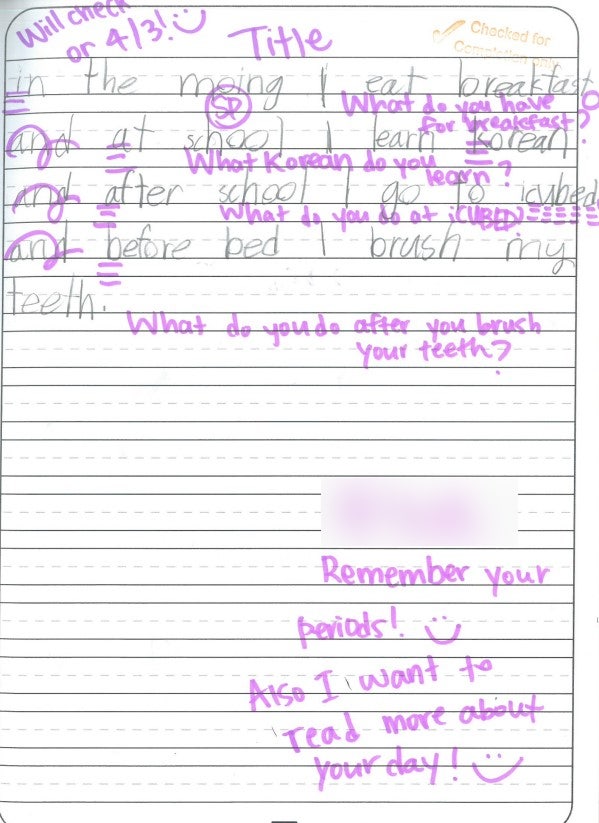 Will check
or 4/3!
Title
Checked for
Completion only.
in the moing I eat breakfast
SP
What do you have
for breakfast?
and at school I learn korean
What Korean do you
learn?
and after school I go to icubed
What do you do at iCUBED
and before bed I brush my
teeth.
What do you do after you brush
your teeth?
Remember your
periods!
Also I want to
read more about
your day!